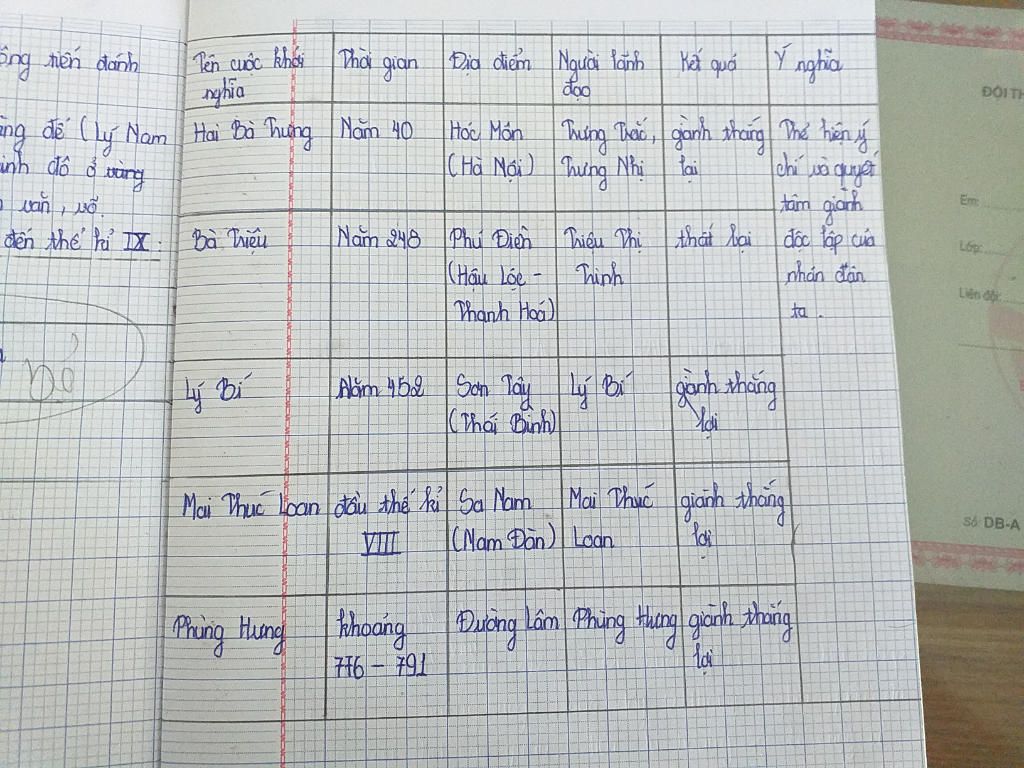 ông tiến đánh
ng đế (Lý Nam
inh đô ở vùng
văn, võ.
đến thế kỉ IX.
Tên cuộc khởi
nghĩa
Thời gian
Địa điểm
Người lãnh
đạo
Kết quả
Ý nghĩa
Hai Bà Trưng
Năm 40
Hóc Môn
(Hà Nội)
Trưng Trắc,
Trưng Nhị
giành thắng
lại
Thể hiện ý
chí và quyết
tâm giành
độc lập của
nhân dân
ta.
Bà Triệu
Năm 248
Phú Điền
(Hậu Lộc -
Thanh Hoá)
Triệu Thị
Trinh
thất bại
Lý Bí
Năm 452
Sơn Tây
(Thái Bình)
Lý Bí
giành thắng
lợi
Mai Thúc Loan
đầu thế kỉ
VIII
Sa Nam
(Nam Đàn)
Mai Thúc
Loan
giành thắng
lợi
Phùng Hưng
khoảng
776 - 791
Đường Lâm
Phùng Hưng
giành thắng
lợi
ĐỘI TH
Em:
Lớp:
Liên đội:
Số: DB-A